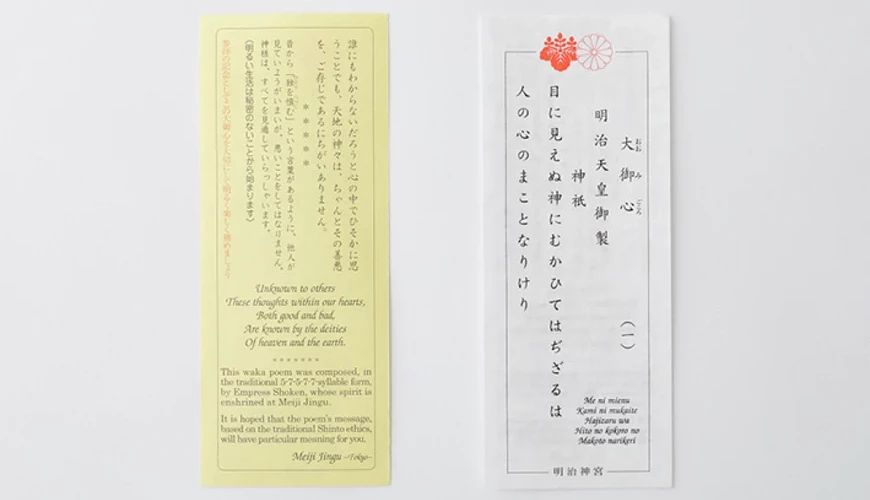 誰にもわからないだろうと心の中でひそかに思
うことでも、天地の神々は、ちゃんとその善悪
を、ご存じであるにちがいありません。
*****
昔から「独を慎む」という言葉があるように、他人が
見ていようがいまいが、悪いことをしてはなりません。
神様は、すべてを見通していらっしゃいます。
(明るい生活は秘密のないことから始まります)
参拝の記念としてこの大御心を大切にし明るく楽しく務めましょう
Unknown to others
These thoughts within our hearts,
Both good and bad,
Are known by the deities
Of heaven and the earth.
*******
This waka poem was composed, in
the traditional 5-7-5-7-7-syllable form,
by Empress Shoken, whose spirit is
enshrined at Meiji Jingu.
It is hoped that the poem's message,
based on the traditional Shinto ethics,
will have particular meaning for you.
Meiji Jingu –Tokyo–
大御心 (一)
おお み ごころ
明治天皇御製
神祇
目に見えぬ神にむかひてはぢざるは
人の心のまことなりけり
Me ni mienu
Kami ni mukaite
Hajizaru wa
Hito no kokoro no
Makoto narikeri
明治神宮